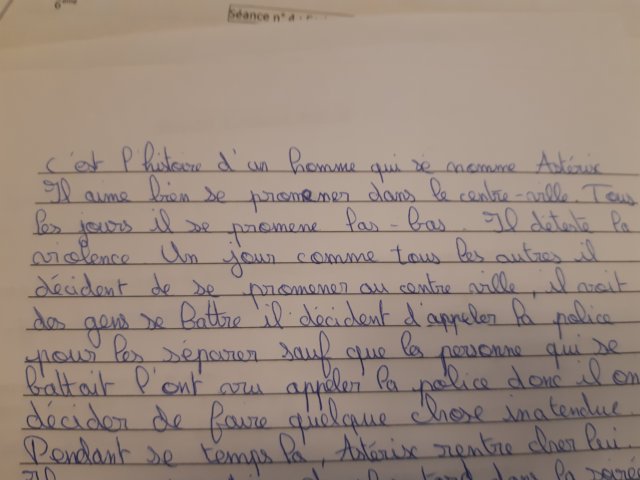 6ème
Séance n° 4
C'est l'histoire d'un homme qui se nomme Astérix
Il aime bien se promener dans le centre-ville. Tous
les jours il se promene las-bas. Il déteste la
violence. Un jour comme tous les autres il
décident de se promener au centre ville, il voit
des gens se battre il décident d'appeler la police
pour les séparer sauf que les personne qui se
battait l'ont vru appeler la police donc il on
décider de faire quelque chose inatendue.
Pendant se temps la, Astérix rentre cher lui.
Il tard dans la soirée